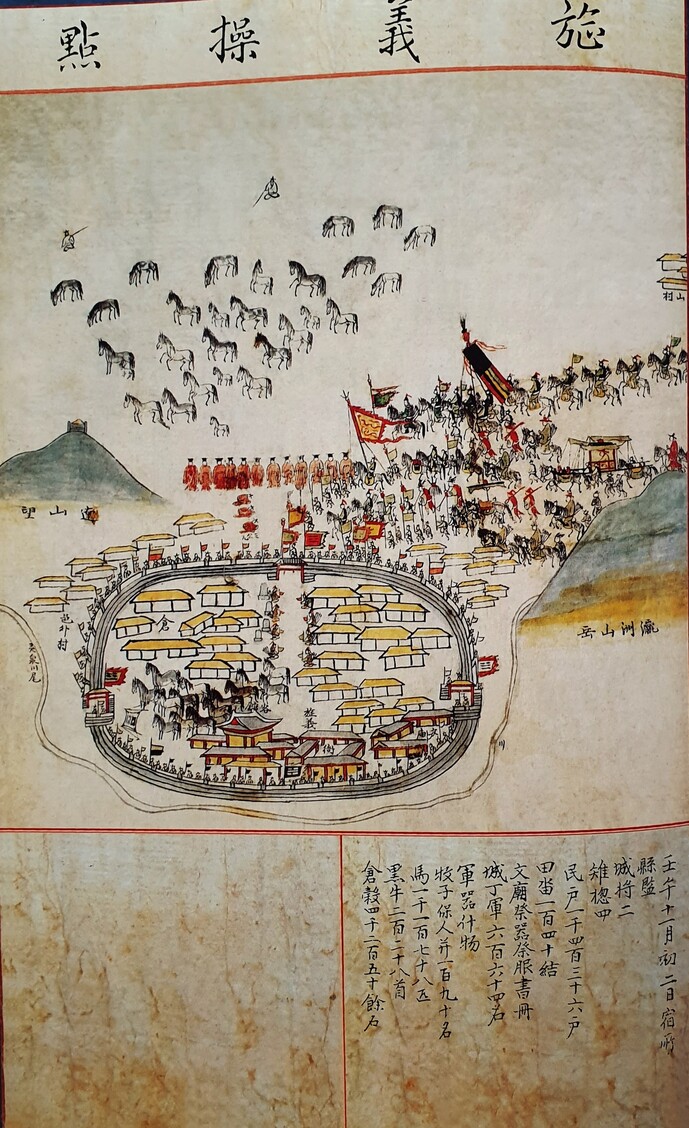 旌義操點
山村
達山望
瀛洲山岳
倉
川
壬午十一月初二日宿所
縣監
城將二
雉摠四
民戶一千四百三十六戶
田畓一百四十結
文廟祭器祭服書冊
城丁軍六百六十四名
軍器什物
牧子保人并一百九十名
馬一千一百七十八匹
黑牛二百二十八首
倉穀四千二百五十餘石